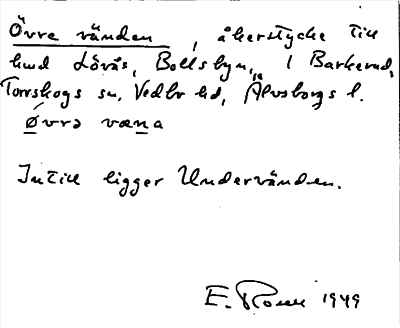 Övre vänden, åkerstycke till
hmd Lövås, Bollsbyn, i Barkerud,
Torrskogs sn, Vedbo hd, Älvsborgs l.
Øvrə væna
Intill ligger Undervänden.
E. 1949